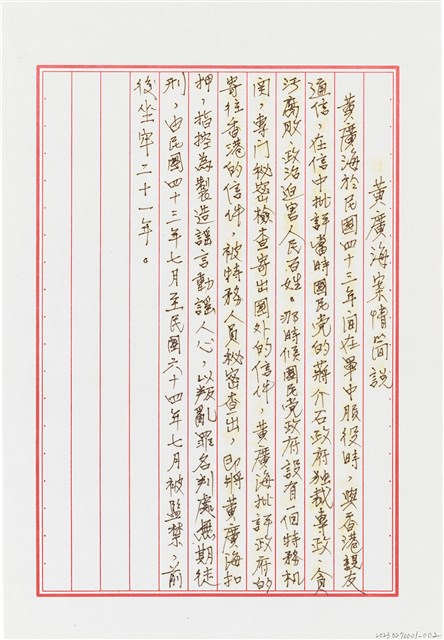 黃廣海案情簡說
黃廣海於民國四十三年間在軍中服役時，與香港親友
通信，在信中批評當時國民党的蔣介石政府独裁專政、貪
污腐敗、政治迫害人民百姓。那時候國民党政府設有一個特務机
関，專門秘密檢查寄出國外的信件，黃廣海批評政府的
寄往香港的信件，被特務人員秘密查出，即將黃廣海扣
押，指控為製造謠言動謠人心，以叛亂罪名判處無期徒
刑，由民國四十三年七月至民國六十四年七月被監禁，前
後坐牢二十一年。
20230270001-002